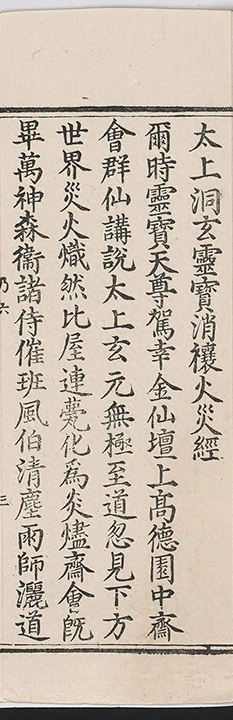 太上洞玄靈寶消禳火災經
爾時靈寶天尊駕幸金仙壇上高德園中齋
會群仙講說太上玄元無極至道忽見下方
世界災火熾然比屋連甍化為炎燼齋會既
畢萬神森衛諸侍催班風伯清塵雨師灑道
乃六
三